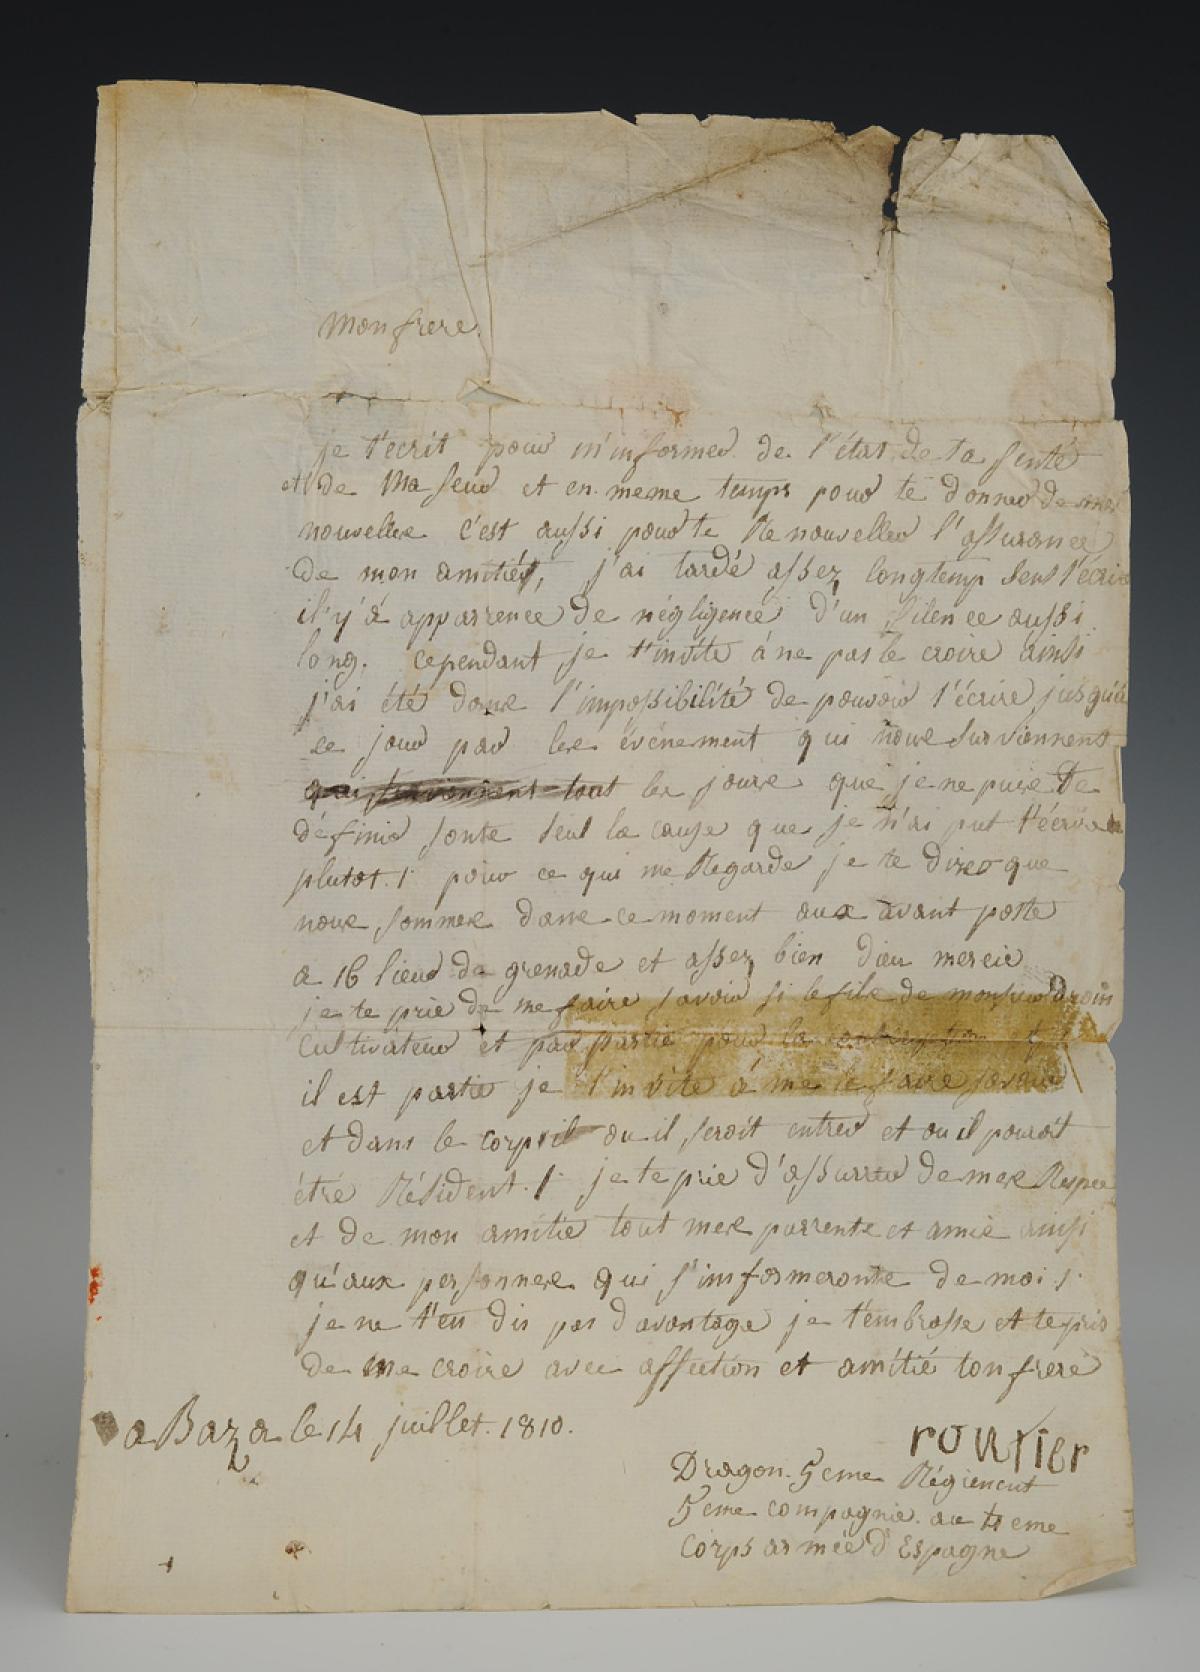 Mon frere.
je t'ecrit pour m'informer de l'état de ta senté
et de Ma seur et en meme temps pour te donner de mes
nouvelle c'est aussi pour te Renouveller l'assurance
de mon amitiés, j'ai tardé assez longtemp sens t'écrire
il'y'a apparrence de négligence d'un silence aussi
long. cependant je t'invite á ne pas le croire ainsi
j'ai été dans l'impossibilité de pouvoir t'écrire jusqu'á
ce jour par les événement qui nous surviennent
qui surviennent tout les jours que je ne puis te
définir sonte seul la cause que je n'ai put t'écrire
plutot. /. pour ce qui me Regarde je te direr que
nous sommes dans ce moment aux avant poste
a 16 lieus de grenade et assez bien dieu mercie
je te prie de me faire savoir si le fils de monsieur Drouin
cultivateur et par partie pour la
il est partie je t'invite á me le faire savoir
et dans le corps il ou il seroit entrer et ou il pouroit
étre Résident. /. je te prie d'assurrer de mes Respec
et de mon amitié tout mes parrents et amie ainsi
qu'aux personnes qui s'imformeronte de moi /.
je ne t'en dis pas davantage je t'embrasse et te pris
de me croire avec affection et amitié ton frere
a Baza le 14 juillet. 1810.
routier
Dragon 5eme Régiement
5eme compagnie au 4eme
Corps armée d'Espagne